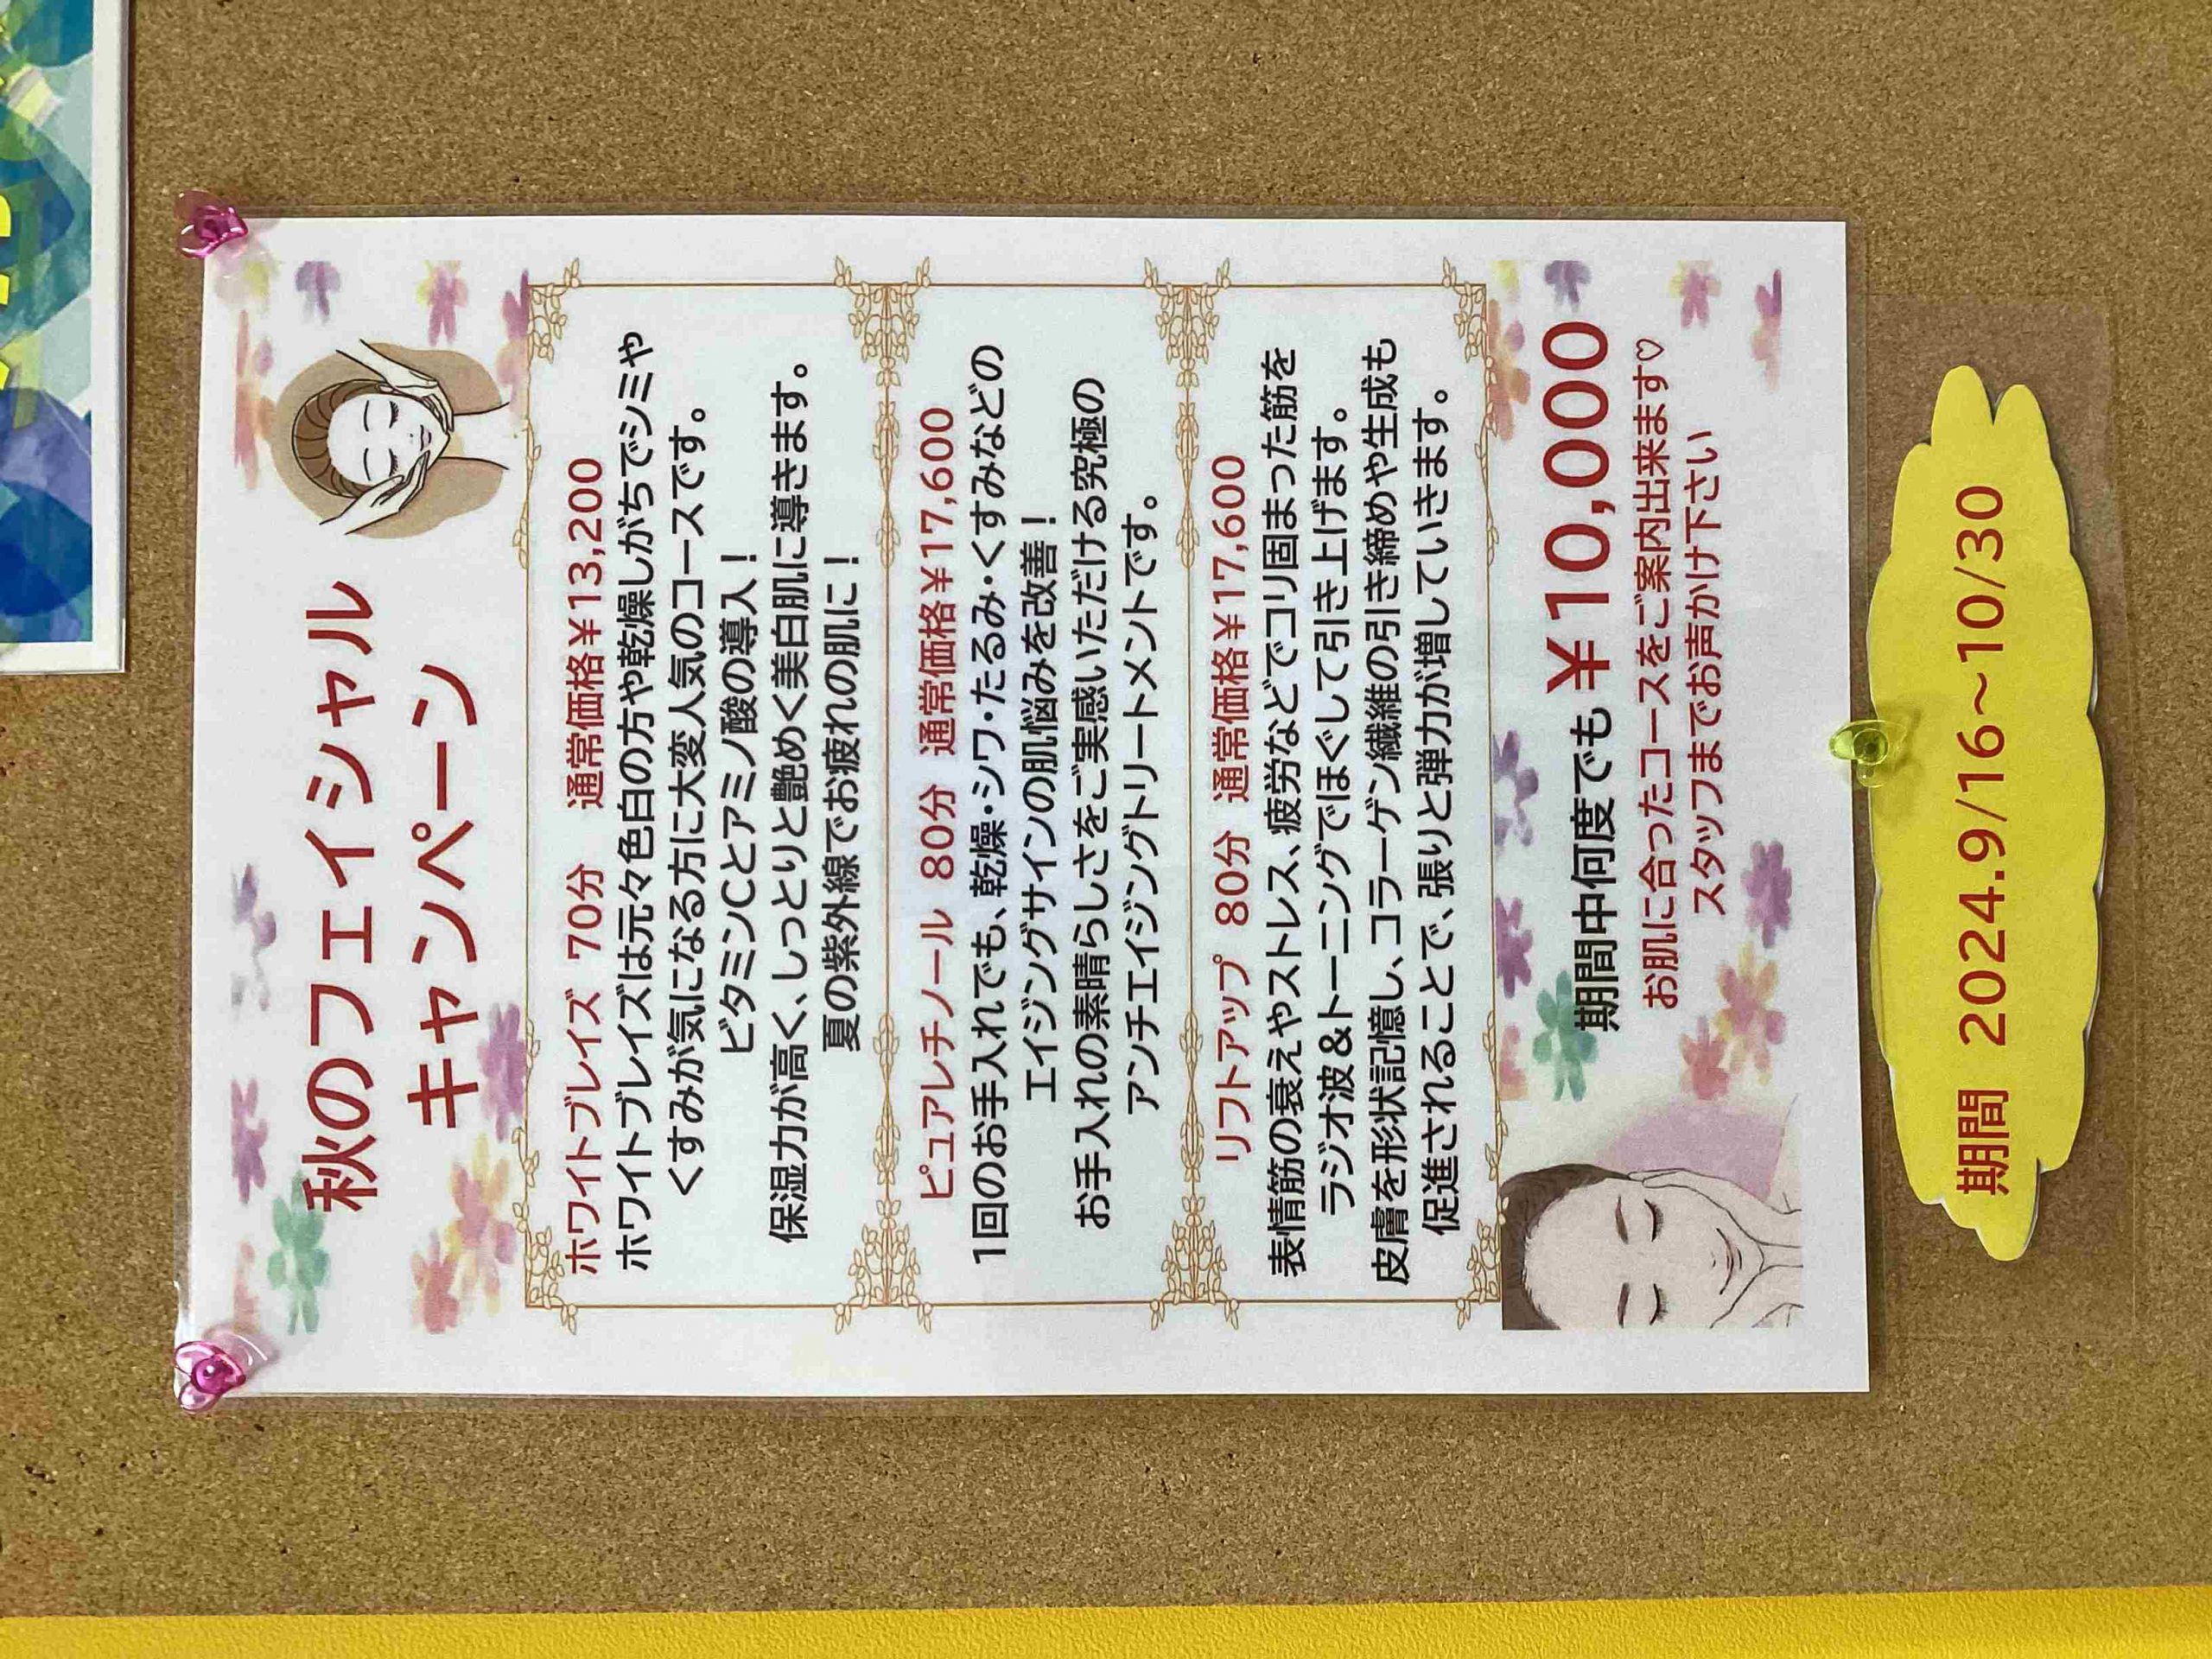 秋のフェイシャル
キャンペーン
ホワイトブレイズ 70分 通常価格¥13,200
ホワイトブレイズは元々色白の方や乾燥しがちでシミや
くすみが気になる方に大変人気のコースです。
ビタミンCとアミノ酸の導入！
保湿力が高く、しっとりと艶めく美白肌に導きます。
夏の紫外線でお疲れの肌に！
ピュアレチノール 80分 通常価格¥17,600
1回のお手入れでも、乾燥・シワ・たるみ・くすみなどの
エイジングサインの肌悩みを改善！
お手入れの素晴らしさをご実感いただける究極の
アンチエイジングトリートメントです。
リフトアップ 80分 通常価格¥17,600
表情筋の衰えやストレス、疲労などでコリ固まった筋を
ラジオ波＆トーニングでほぐして引き上げます。
皮膚を形状記憶し、コラーゲン繊維の引き締めや生成も
促進されることで、張りと弾力が増していきます。
期間中何度でも¥10,000
お肌に合ったコースをご案内出来ます♡
スタッフまでお声かけ下さい
期間 2024.9/16~10/30